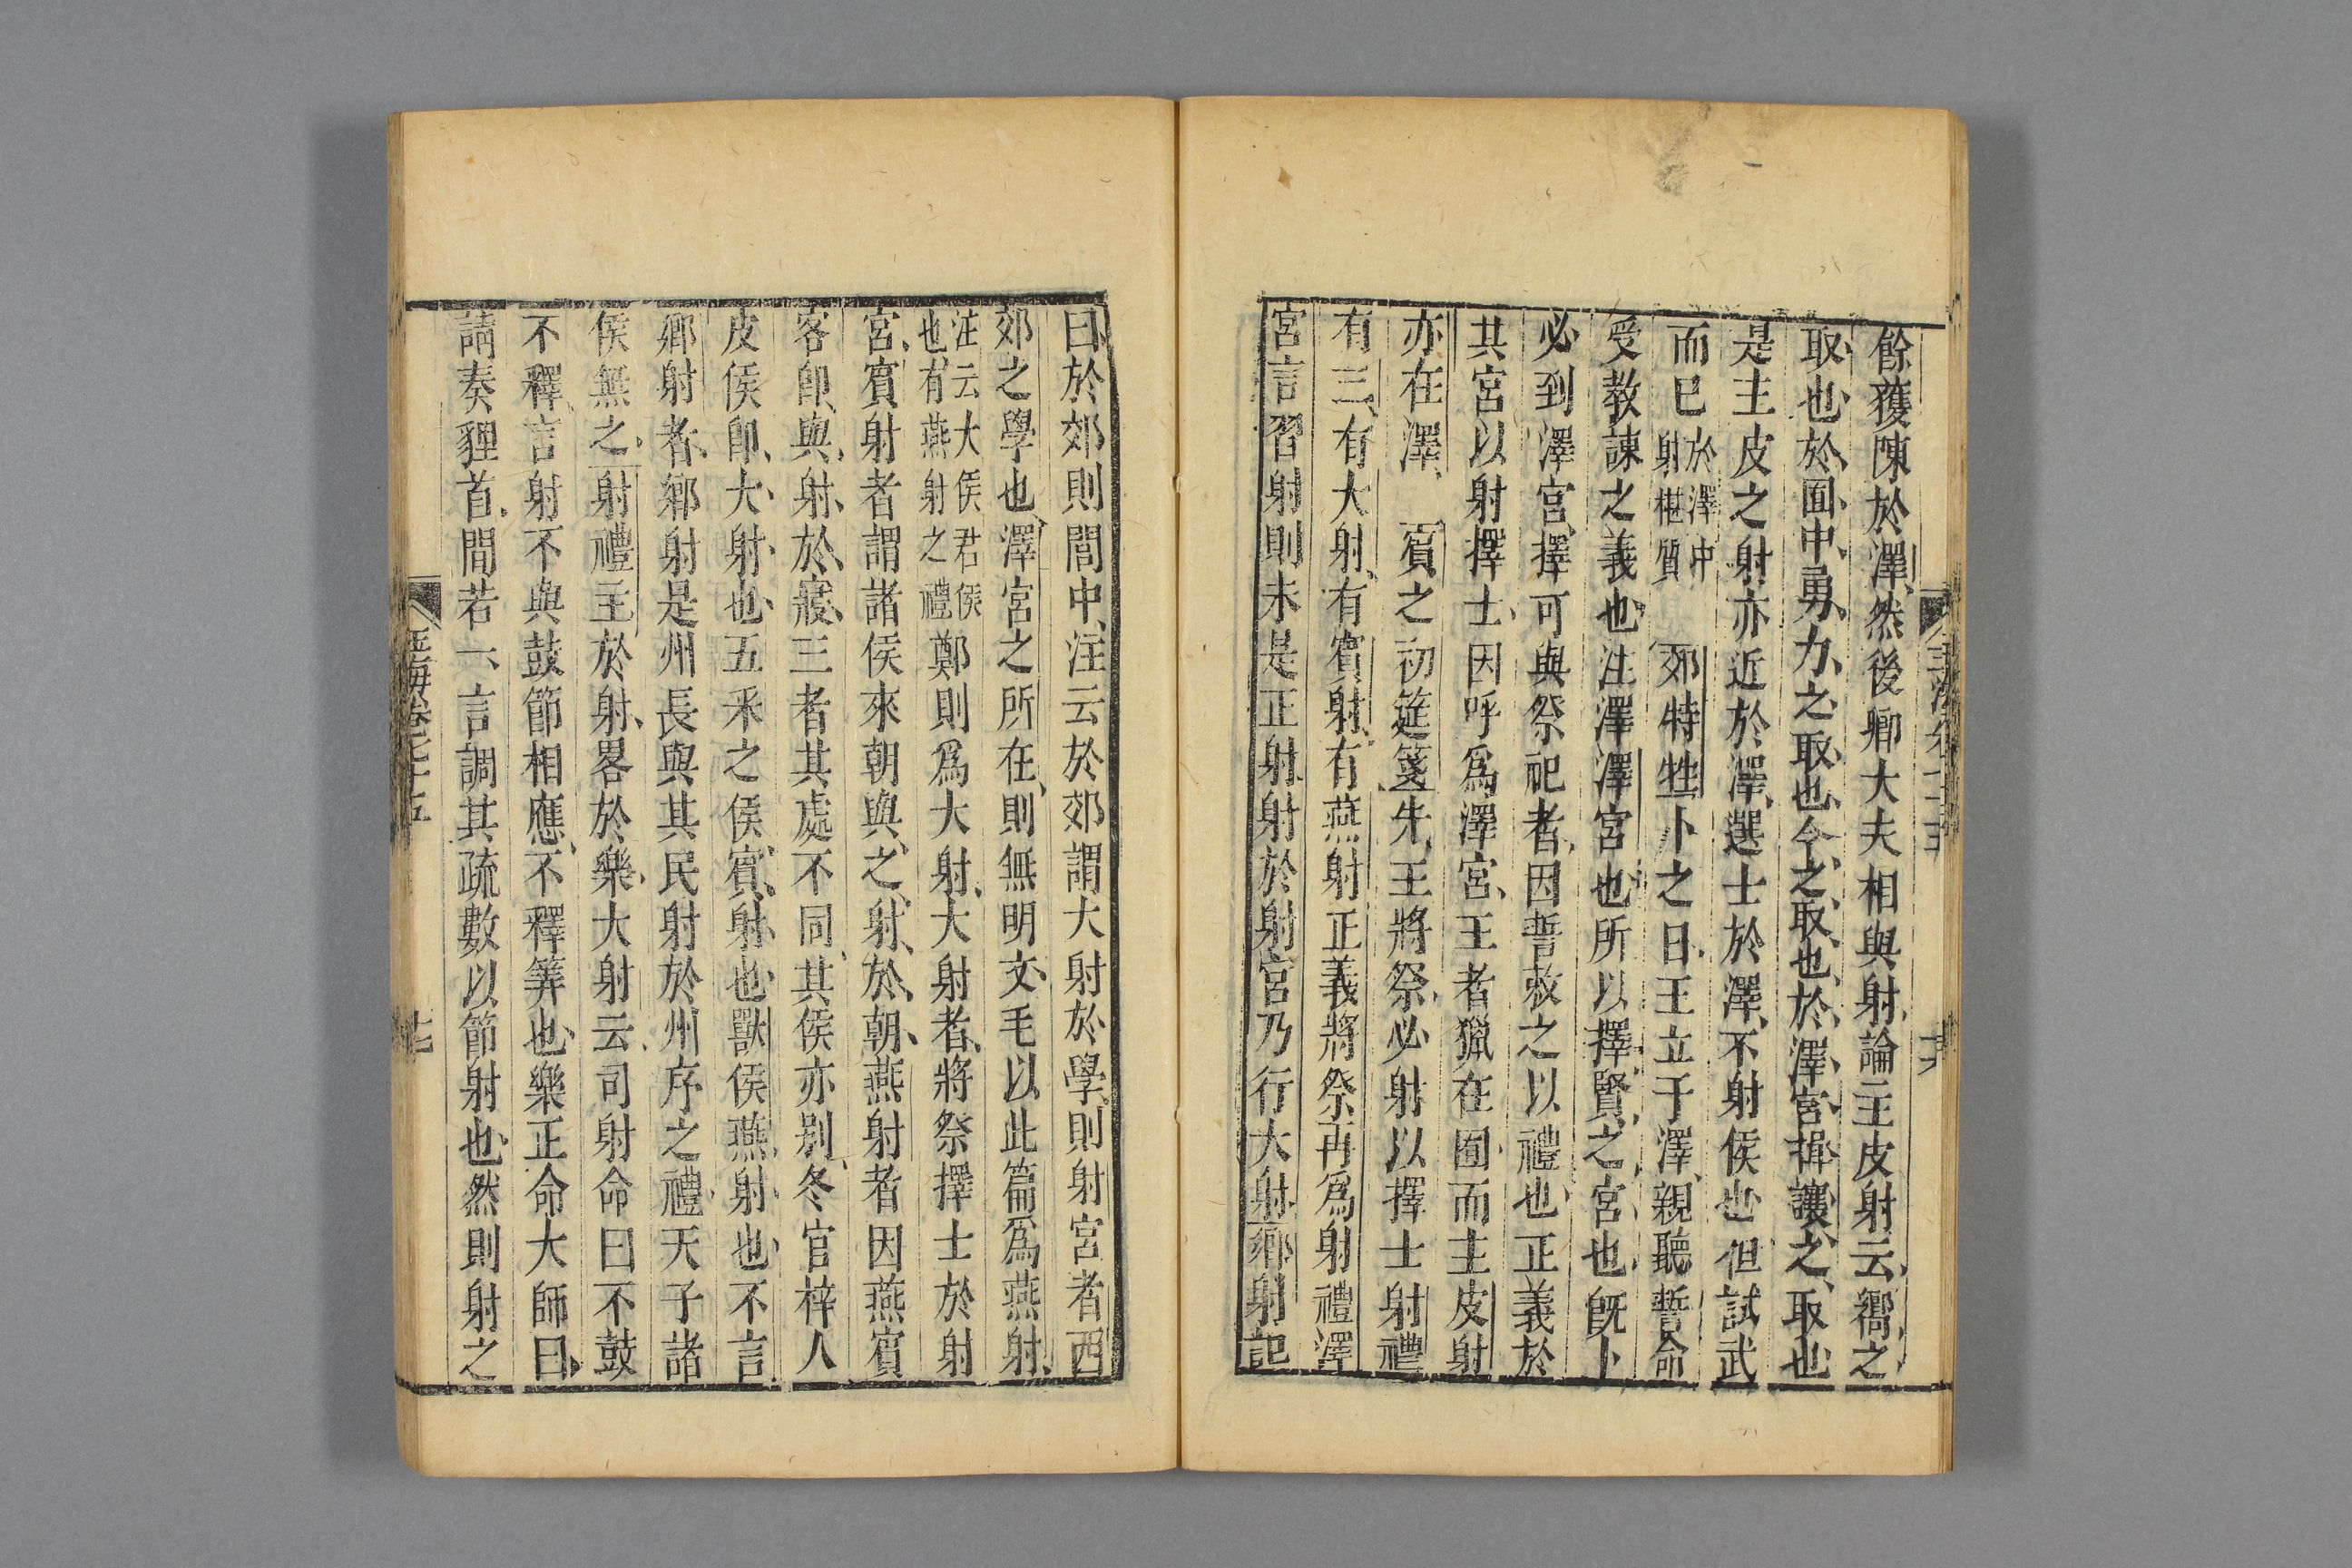 餘獲陳於澤然後卿大夫相與射論主皮射云嚮之
取也於囿中勇力之取也今之取也於澤宮揖讓之取也
是主皮之射亦近於澤選士於澤不射侯也但試武
而已於澤中射椹質　郊特牲卜之日王立于澤親聽誓命
受教諫之義也注澤澤宮也所以擇賢之宮也旣卜
必到澤宮擇可與祭祀者因誓敕之以禮也正義於
其宮以射擇士因呼爲澤宮王者獵在囿而主皮射
亦在澤　賓之初筵箋先王將祭必射以擇士射禮
有三有大射有賓射有燕射正義將祭再爲射禮澤
宮言習射則未是正射射於射宮乃行大射鄉射記
曰於郊則閭中注云於郊謂大射於學則射宮者西
郊之學也澤宮之所在則無明文毛以此篇爲燕射
注云大侯君侯也有燕射之禮鄭則爲大射大射者將祭擇士於射
宮賓射者謂諸侯來朝與之射於朝燕射者因燕賓
客卽與射於寢三者其處不同其侯亦別冬官梓人
皮侯卽大射也五采之侯賓射也獸侯燕射也不言
鄉射者鄉射是州長與其民射於州序之禮天子諸
侯無之射禮主於射畧於樂大射云司射命曰不鼓
不釋言射不與鼓節相應不釋筭也樂正命大師曰
請奏貍首間若一言調其疏數以節射也然則射之
玉海卷七十五
十七